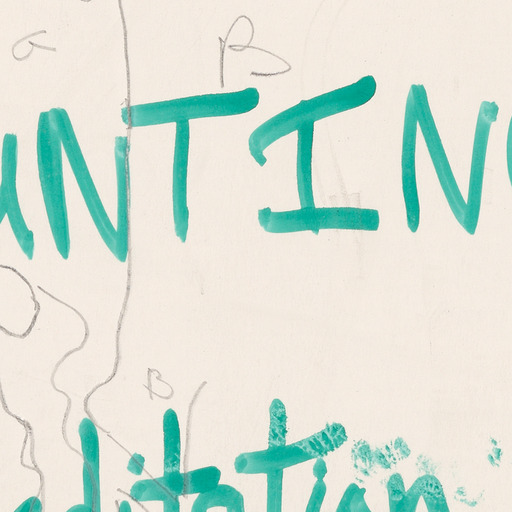 a B
UNTING
B
editation